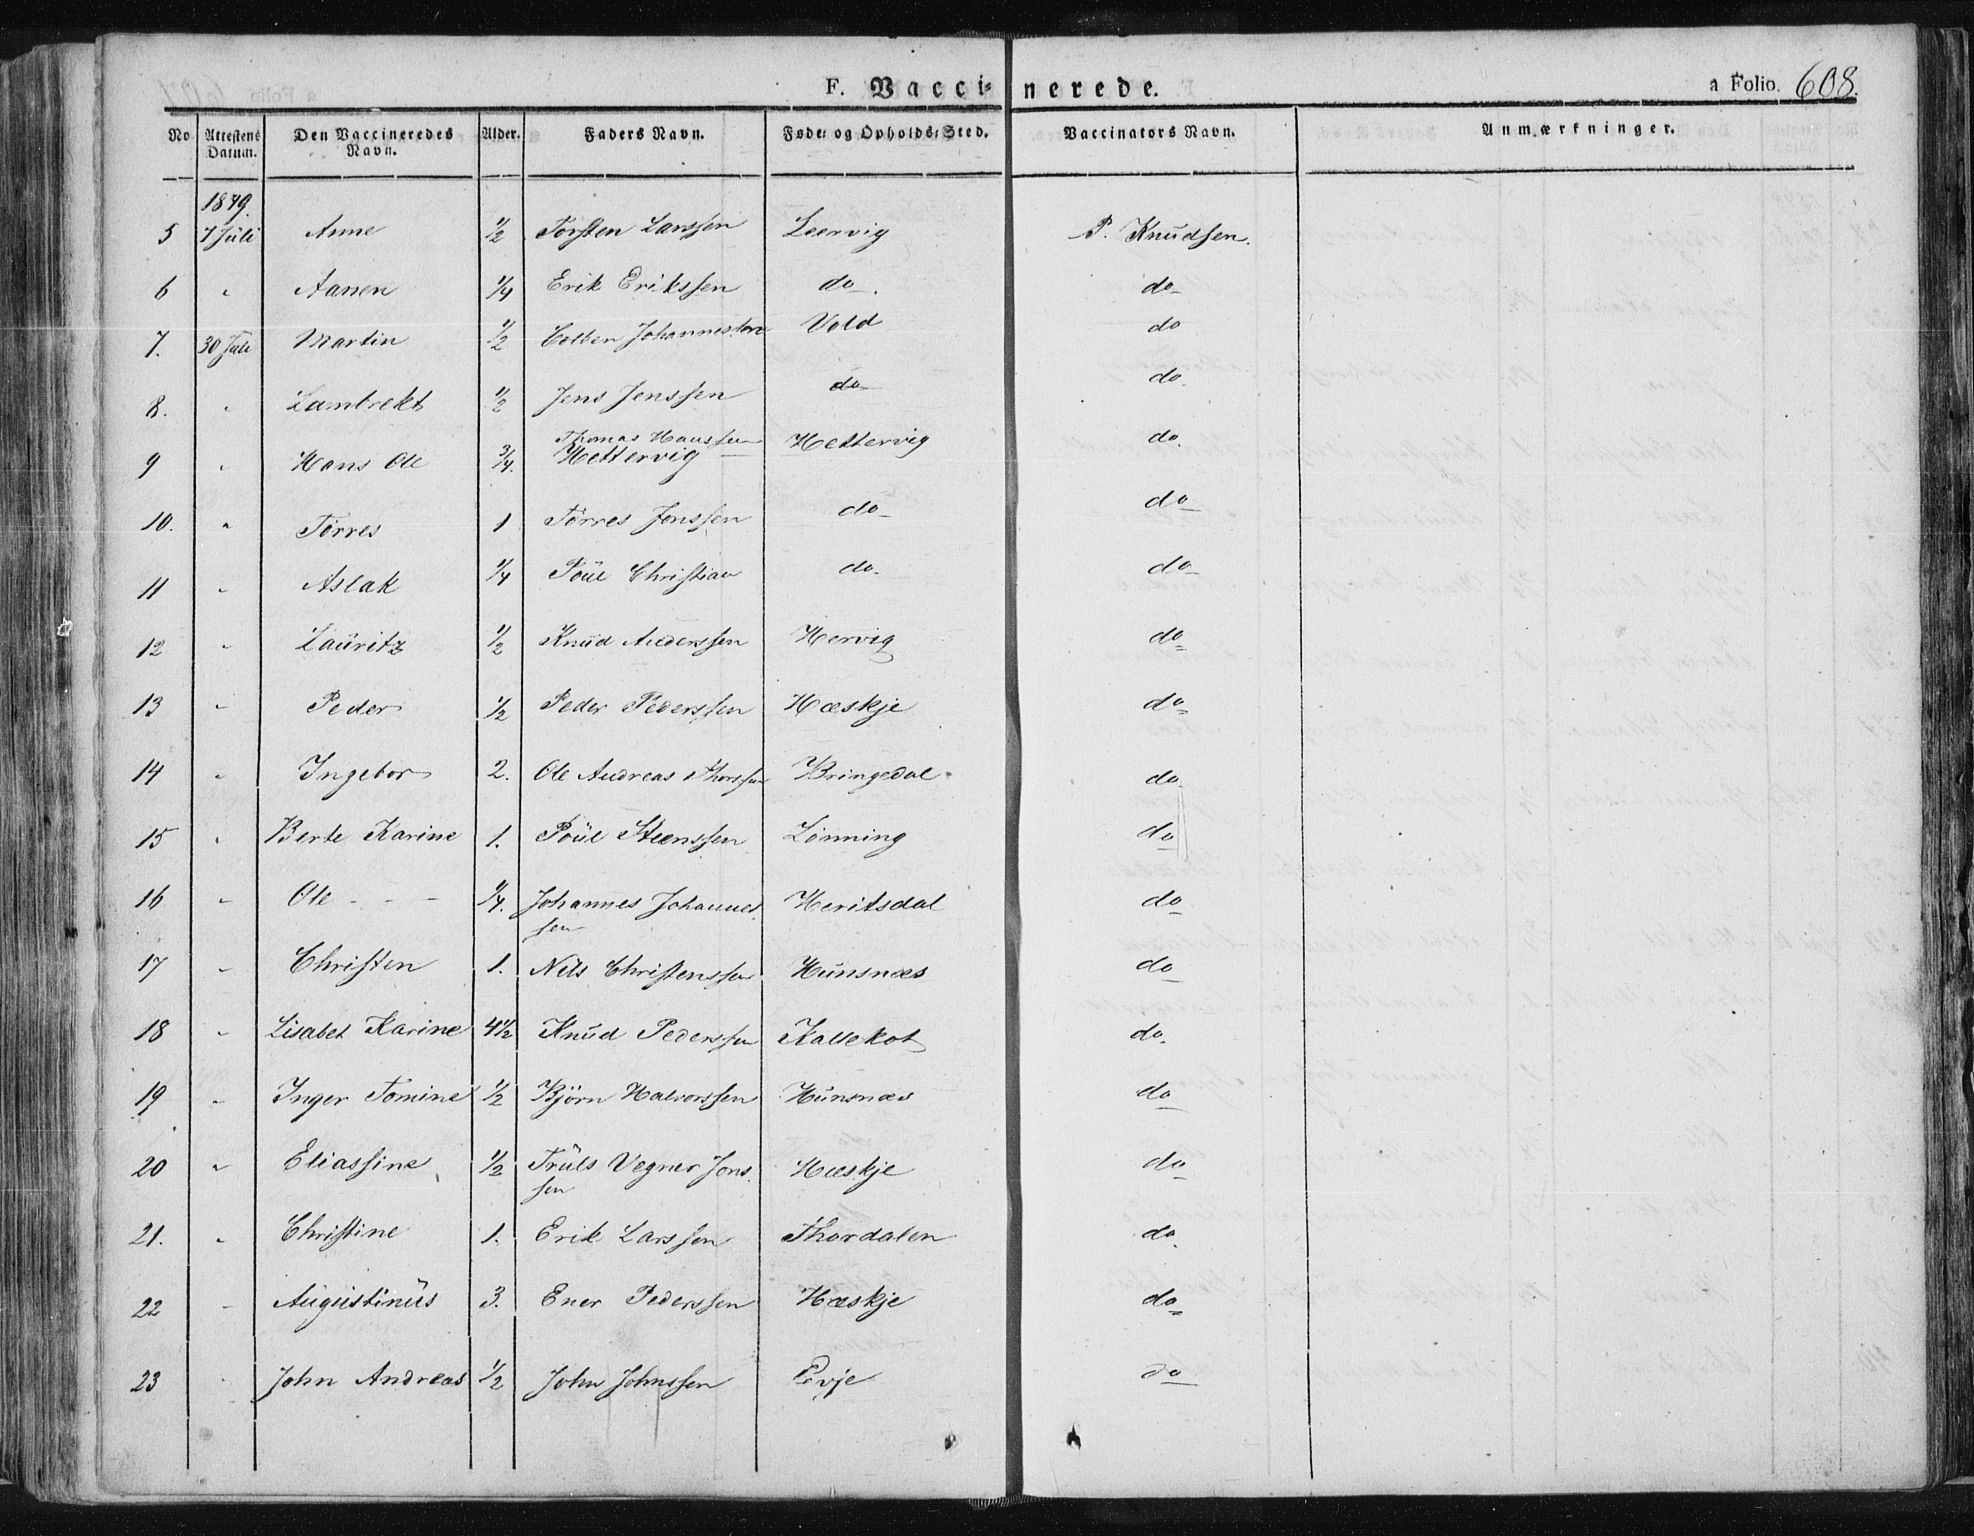 F. Vaccinerede. a Folio. 608.
No Attestens Datum. Den Vaccineredes Navn. Alder. Faders Navn. Føde- og Opholds-Sted. Vaccinators Navn. Anmærkninger.
1849.
5 7 Juli Anne 1/2 Torsten Larssen Leervig P. Knudsen.
6 " Aanen 1/4 Erik Erikssen do. do
7. 30 Juli Martin 1/2 Johannessen Vold do
8. " Lambrekt 1/2 Jens Jenssen do do.
9 " Hans Ole 3/4. Thomas Hanssen Hettervig Hettervig do.
10. " Torres 1 Torres Jonssen do do
11 " Aslak 1/4 Poul Christian do. do
12 " Lauritz 1/2 Knud Anderssen Hervig do
13 " Peder 1/2 Peder Pederssen Hæskje do
14 " Ingebor 2. Ole Andreas Thorssen Bringedal do
15 " Berte Karine 1. Poul Steenssen Lønning do
16 " Ole - - - 1/4. Johannes Johannes
sen Heritsdal do
17 " Christen 1. Nils Christenssen Hunsnæs do
18 " Lisabet Karine 4 1/2 Knud Pederssen Kallekot do.
19 " Inger Tomine 1/2 Björn Halvorssen Hunsnæs do
20 " Eliassine 1/2 Truls Vegner Jons
sen Hæskje do
21. " Christine 1. Erik Larssen Thordalen do.
22 " Augustinus 3. Ener Pederssen Hæskje do
23 " John Andreas 1/2 John Johnssen do